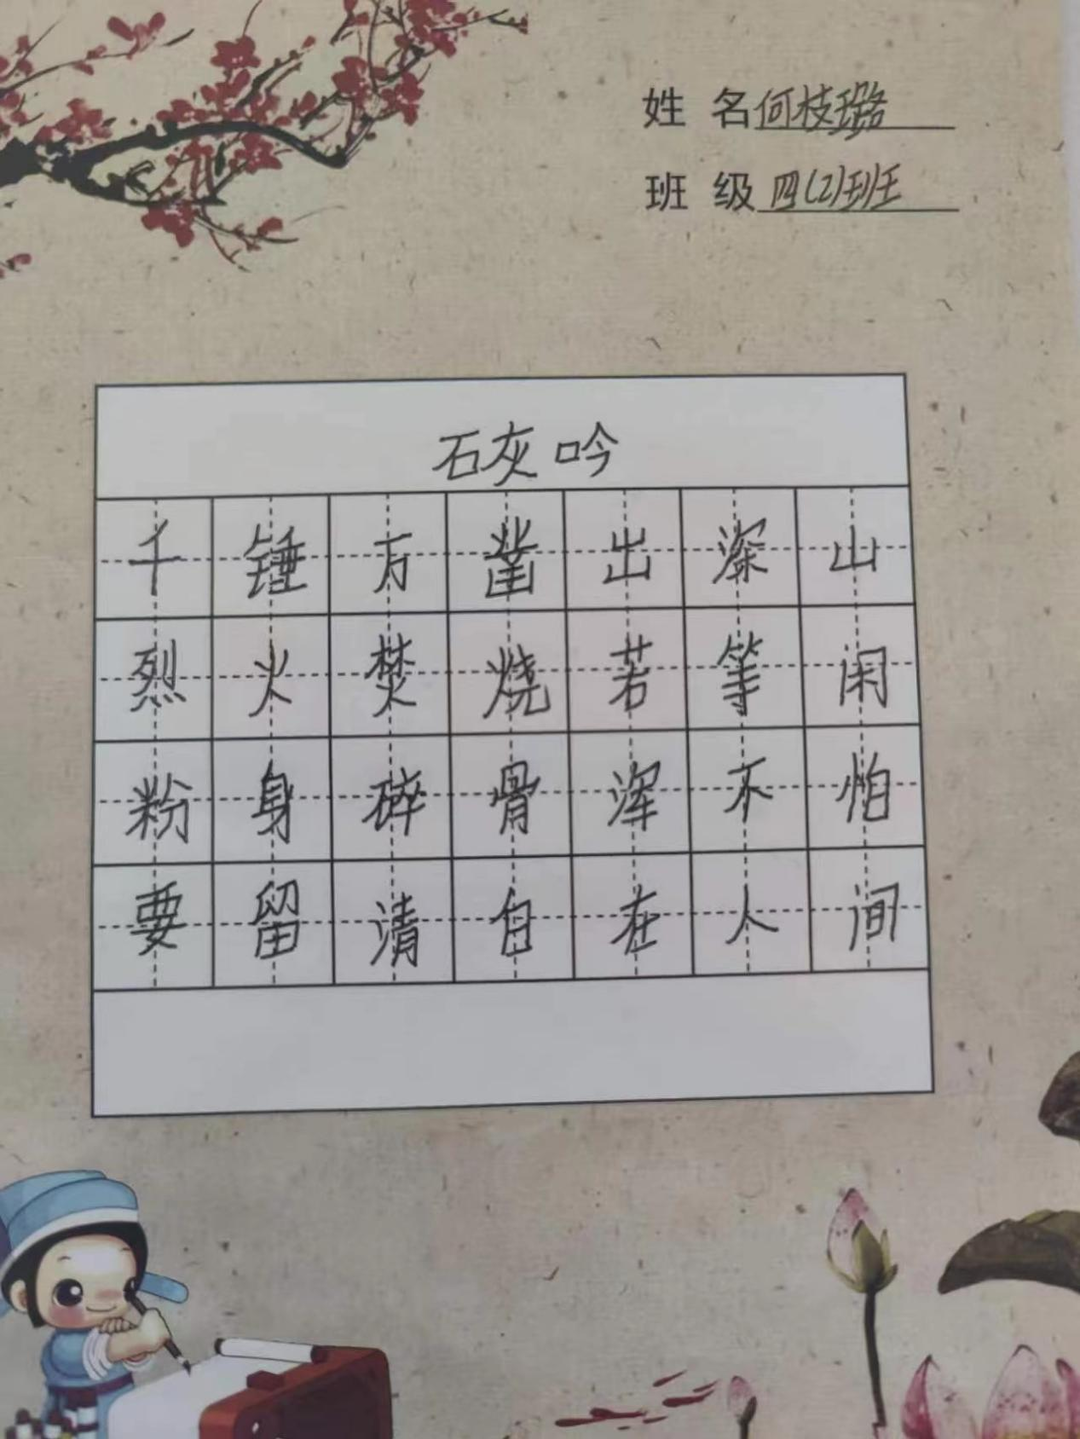 姓 名 何枝璐
班 级 四(2)班班
石灰吟
千锤万凿出深山
烈火焚烧若等闲
粉身碎骨浑不怕
要留清白在人间